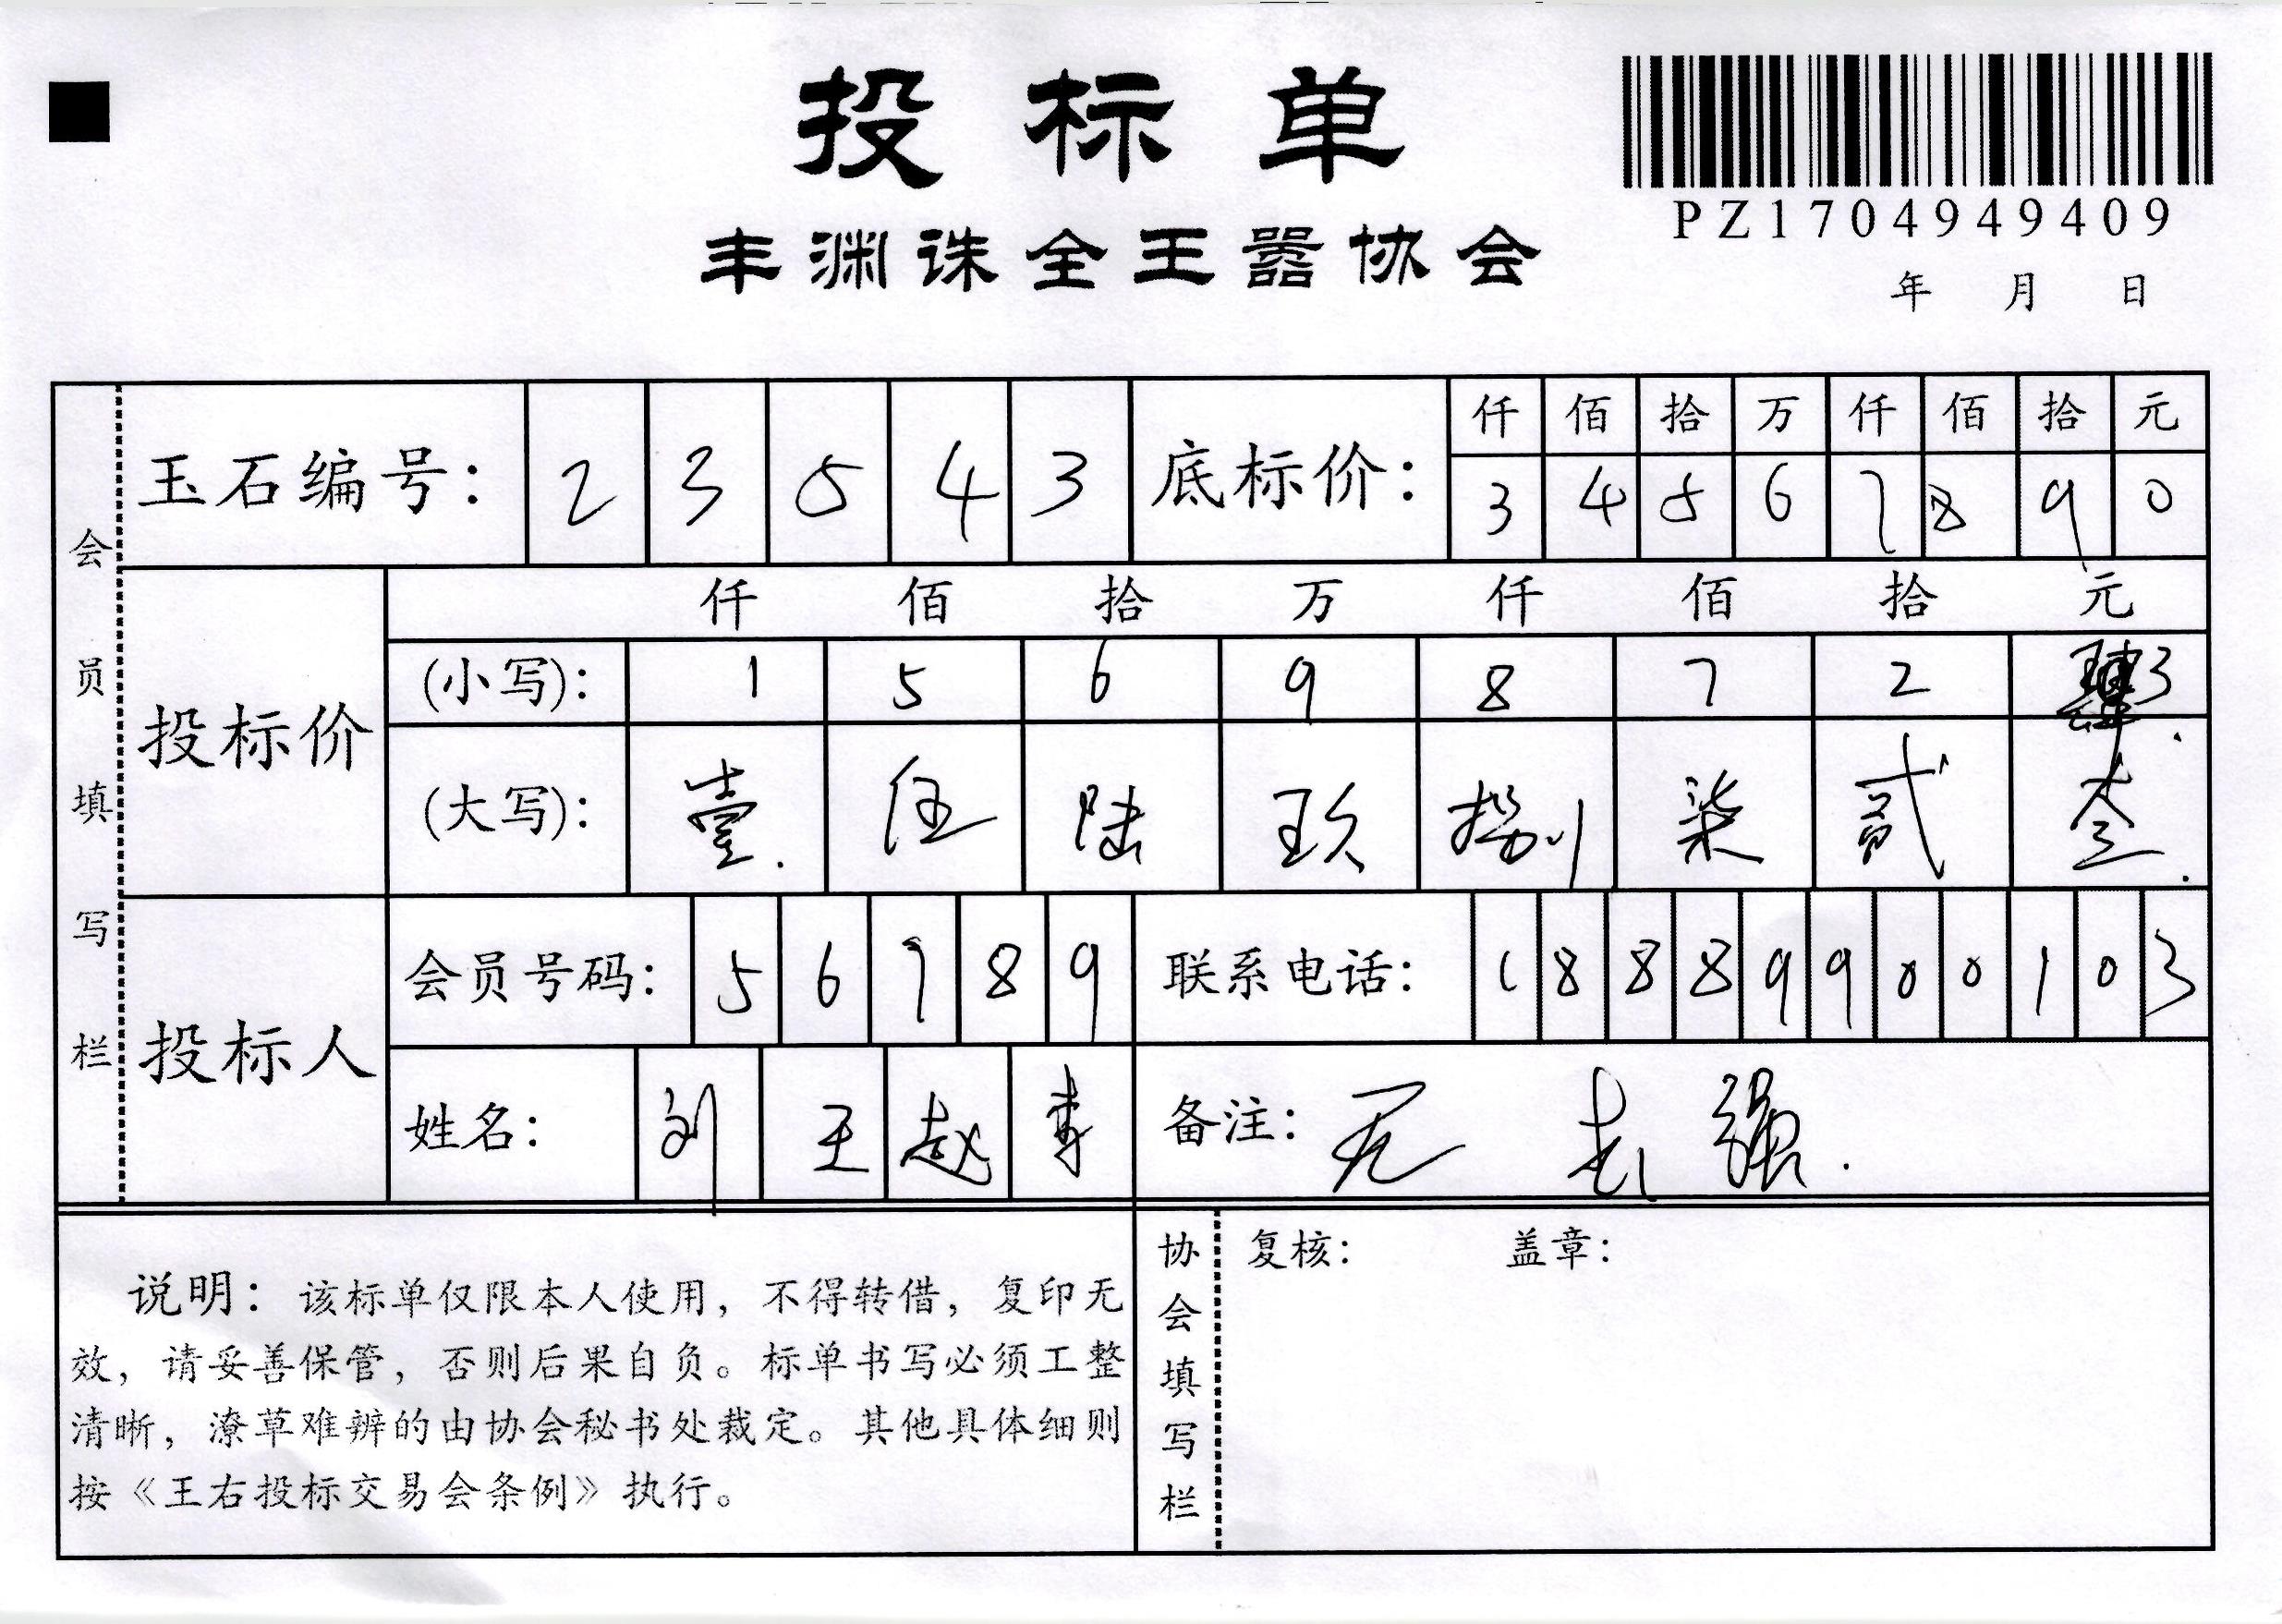 投标单
PZ1704949409
丰渊诛全王嚣协会
年 月 日
会员填写栏
玉石编号: 2 3 5 4 3
底标价: 仟 佰 拾 万 仟 佰 拾 元
3 4 5 6 7 8 9 0
投标价
仟 佰 拾 万 仟 佰 拾 元
(小写): 1 5 6 9 8 7 2 3
(大写): 壹 伍 陆 玖 捌 柒 贰 叁
投标人
会员号码: 5 6 7 8 9
联系电话: 1 8 8 8 9 9 0 0 1 0 3
姓名: 刘 王 赵 李
备注: 无 强
说明: 该标单仅限本人使用，不得转借，复印无
效，请妥善保管，否则后果自负。标单书写必须工整
清晰，潦草难辨的由协会秘书处裁定。其他具体细则
按《王右投标交易会条例》执行。
协会填写栏
复核: 盖章: